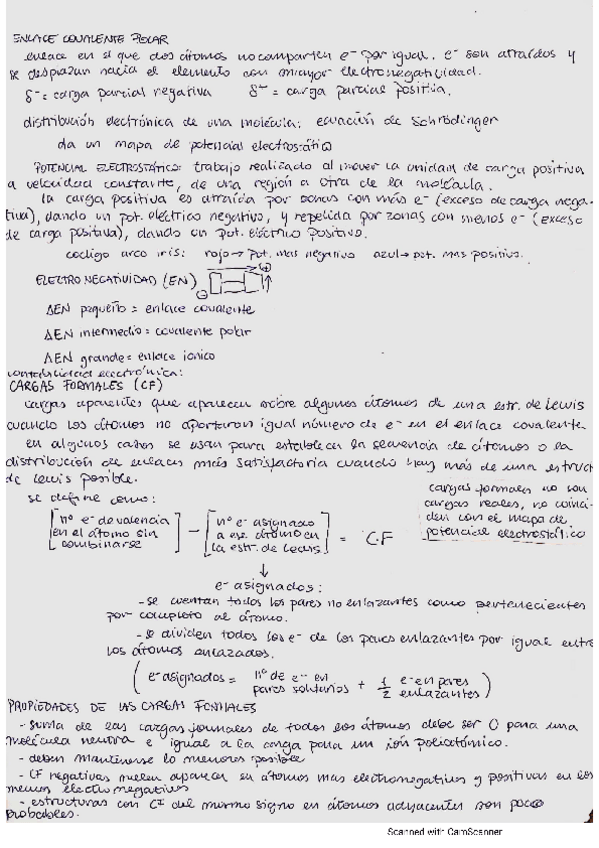 ENLACE COVALENTE POLAR
enlace en el que dos átomos no comparten e⁻ por igual. e⁻ son atraídos y
se desplazan hacia el elemento con mayor electronegatividad.
δ⁻ = carga parcial negativa δ⁺ = carga parcial positiva.
distribución electrónica de una molécula: ecuación de Schrödinger
da un mapa de potencial electrostático
POTENCIAL ELECTROSTÁTICO: trabajo realizado al mover la unidad de carga positiva
a velocidad constante, de una región a otra de la molécula.
la carga positiva es atraída por zonas con más e⁻ (exceso de carga nega-
tiva), dando un pot. eléctrico negativo, y repelida por zonas con menos e⁻ (exceso
de carga positiva), dando un pot. eléctrico positivo.
código arco iris: rojo → pot. mas negativo azul → pot. mas positivo.
ELECTRONEGATIVIDAD (EN) + -
ΔEN pequeño = enlace covalente
ΔEN intermedio = covalente polar
ΔEN grande = enlace iónico
contabilidad electrónica:
CARGAS FORMALES (CF)
cargas aparentes que aparecen sobre algunos átomos de una estr. de Lewis
cuando los átomos no aportaron igual número de e⁻ en el enlace covalente.
en algunos casos se usan para establecer la secuencia de átomos o la
distribución de enlaces más satisfactoria cuando hay más de una estruct
de Lewis posible.
cargas formales no son
cargas reales, no coinci-
den con el mapa de
potencial electrostático
se define como:
[nº e⁻ de valencia en el átomo sin combinarse] - [nº e⁻ asignado a ese átomo en la estr. de Lewis] = CF
↓
e⁻ asignados:
- se cuentan todos los pares no enlazantes como pertenecientes
por completo al átomo.
- se dividen todos los e⁻ de los pares enlazantes por igual entre
los átomos enlazados.
(e⁻ asignados = nº de e⁻ en pares solitarios + 1/2 e⁻ en pares enlazantes)
PROPIEDADES DE LAS CARGAS FORMALES
- suma de las cargas formales de todos los átomos debe ser 0 para una
molécula neutra e igual a la carga para un ión poliatómico.
- deben mantenerse lo menores posible
- CF negativas suelen aparecer en átomos mas electronegativos y positivas en los
menos electronegativos
- estructuras con CF del mismo signo en átomos adyacentes son poco
probables.
Scanned with CamScanner